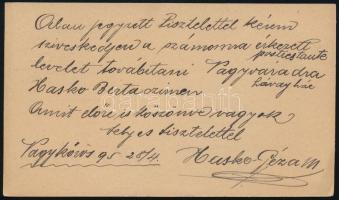 Alan jegyzett tisztelettel kérem
sziveskedjen a számomra érkezett
postrestante
levelet továbitani Nagyváradra
Hasko Berta czimen
Amit előre is köszönve vagyok
teljes tisztelettel
Nagykőrös 95 28/4. Hasko Géza